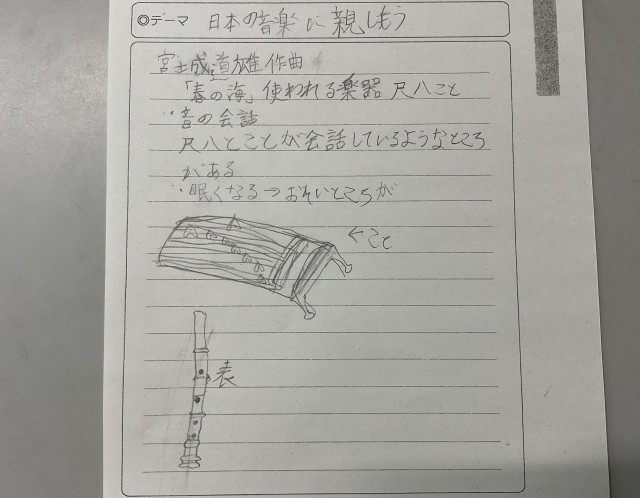 ◎テーマ 日本の音楽に親しもう
宮城道雄作曲
「春の海」使われる楽器 尺八こと
・音の会話
尺八とことが会話しているようなところ
がある
・眠くなる→おそいところが
←こと
表